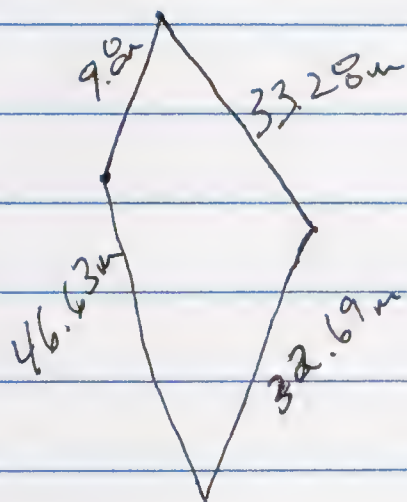 9.8m
33.28m
46.63m
32.69m